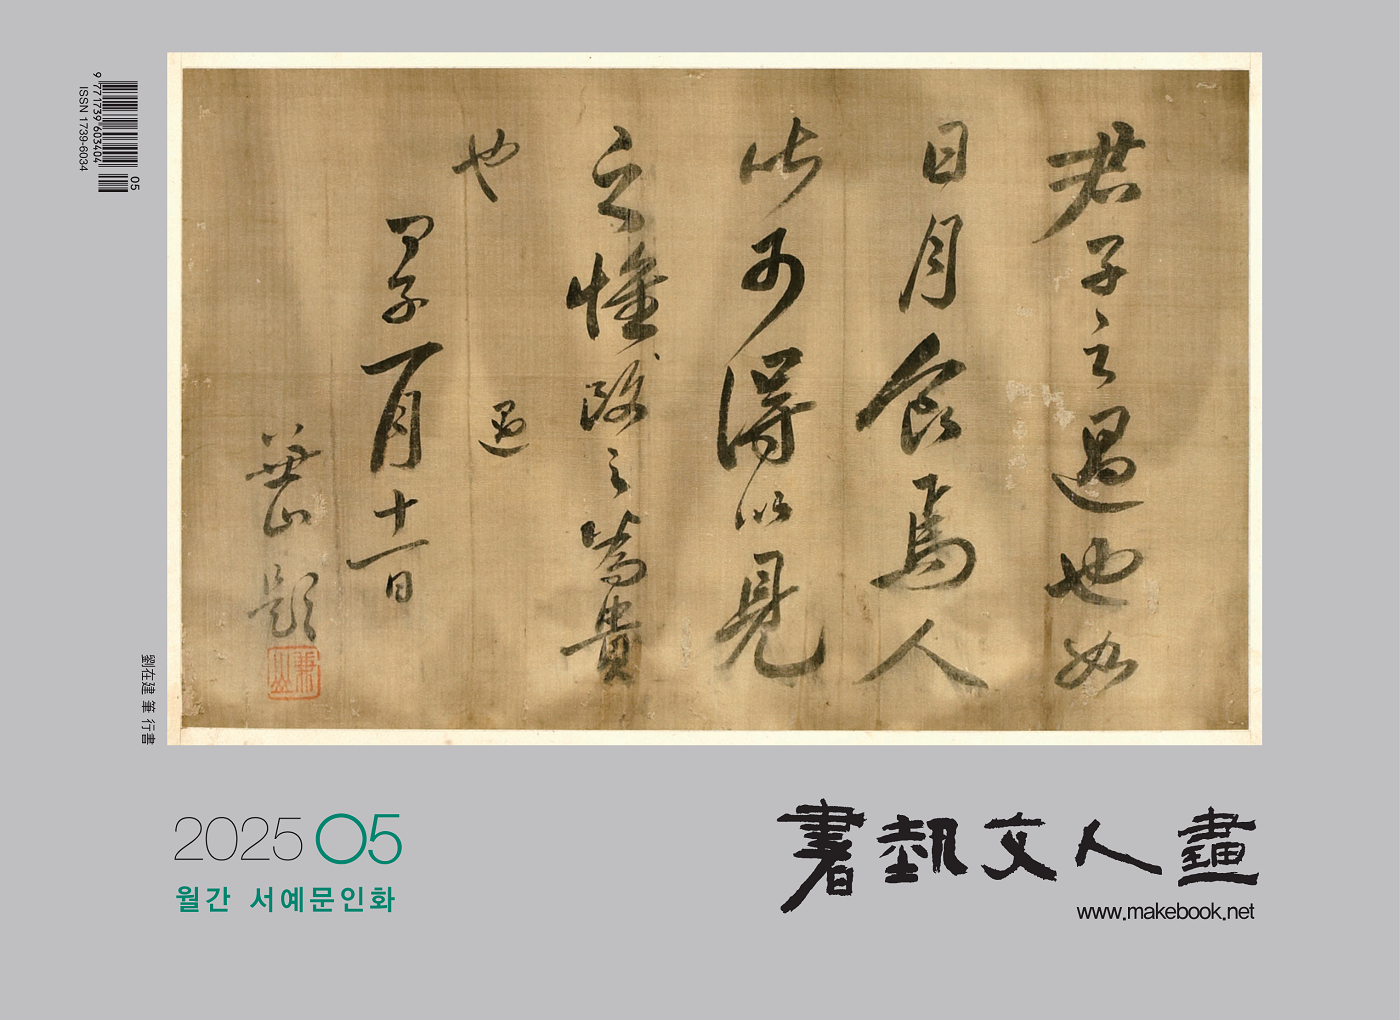 9 771739 603404
05
ISSN 1739-6034
君子之過也如
日月食焉人
此可得以見
之惟改之為貴
也 過
甲子一月十一日
兼山題
兼山
劉在建 筆 行書
2025 05
월간 서예문인화
書藝文人畵
www.makebook.net